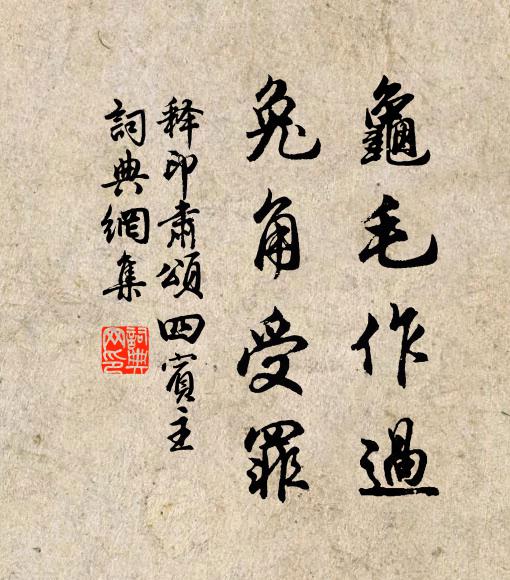 龜毛作過
兔角受罪
释印肅頌四賓主
詞典網集
詞典网印